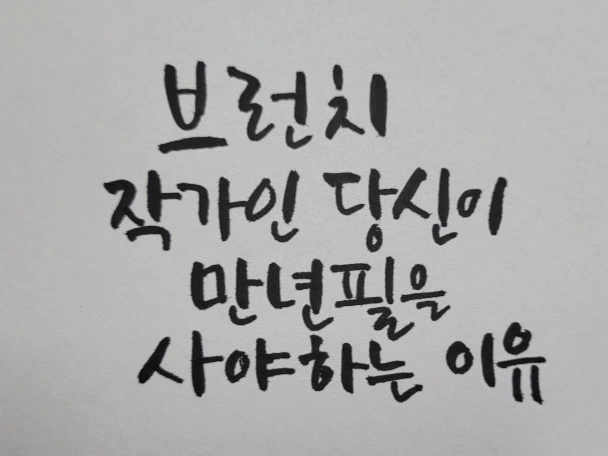 브런치
작가인 당신이
만년필을
사야하는 이유